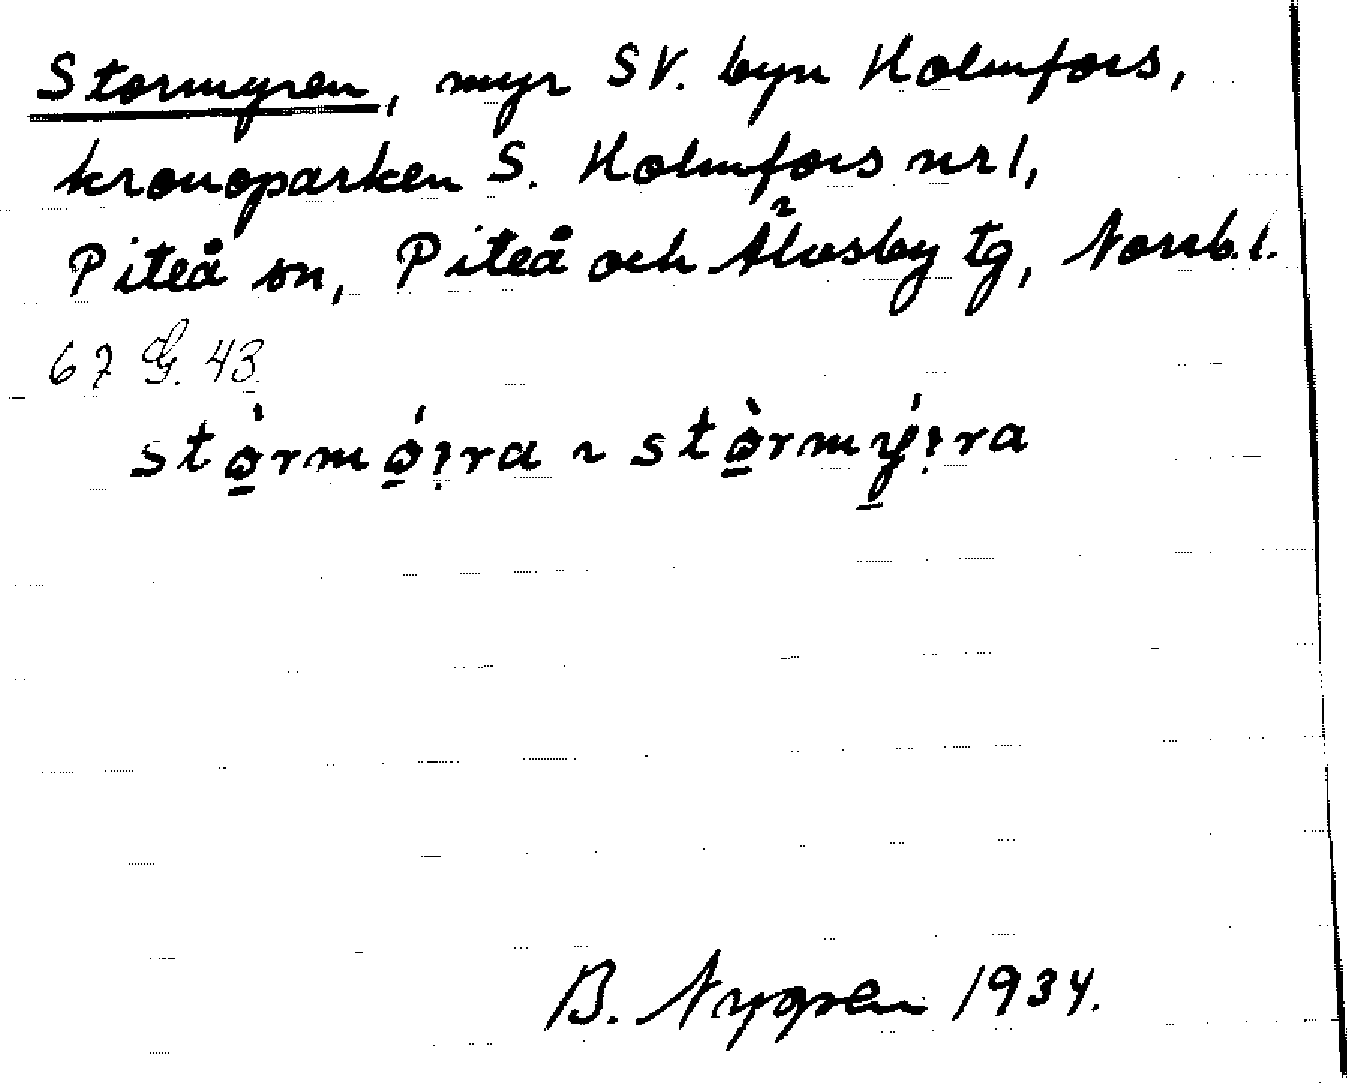 Stormyren, myr SV. byn Holmfors,
kronoparken S. Holmfors nr 1,
Piteå sn, Piteå och Älvsby tg, Norrb. l.
67 G. 43
stò̠rmó̠ːra ~ stò̠rmý̠ːra
B. Nygren 1934.